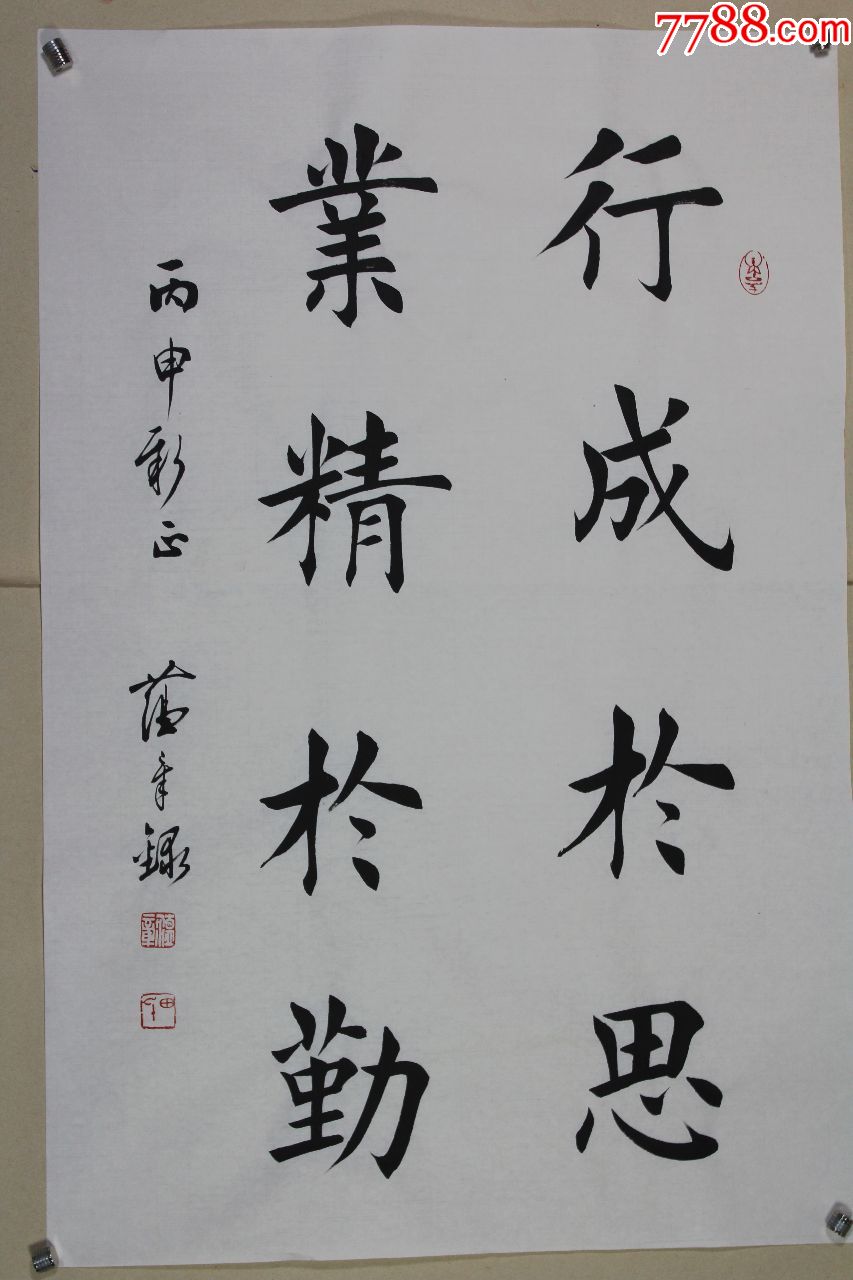 7788.com
行成於思
業精於勤
丙申新正
章錄